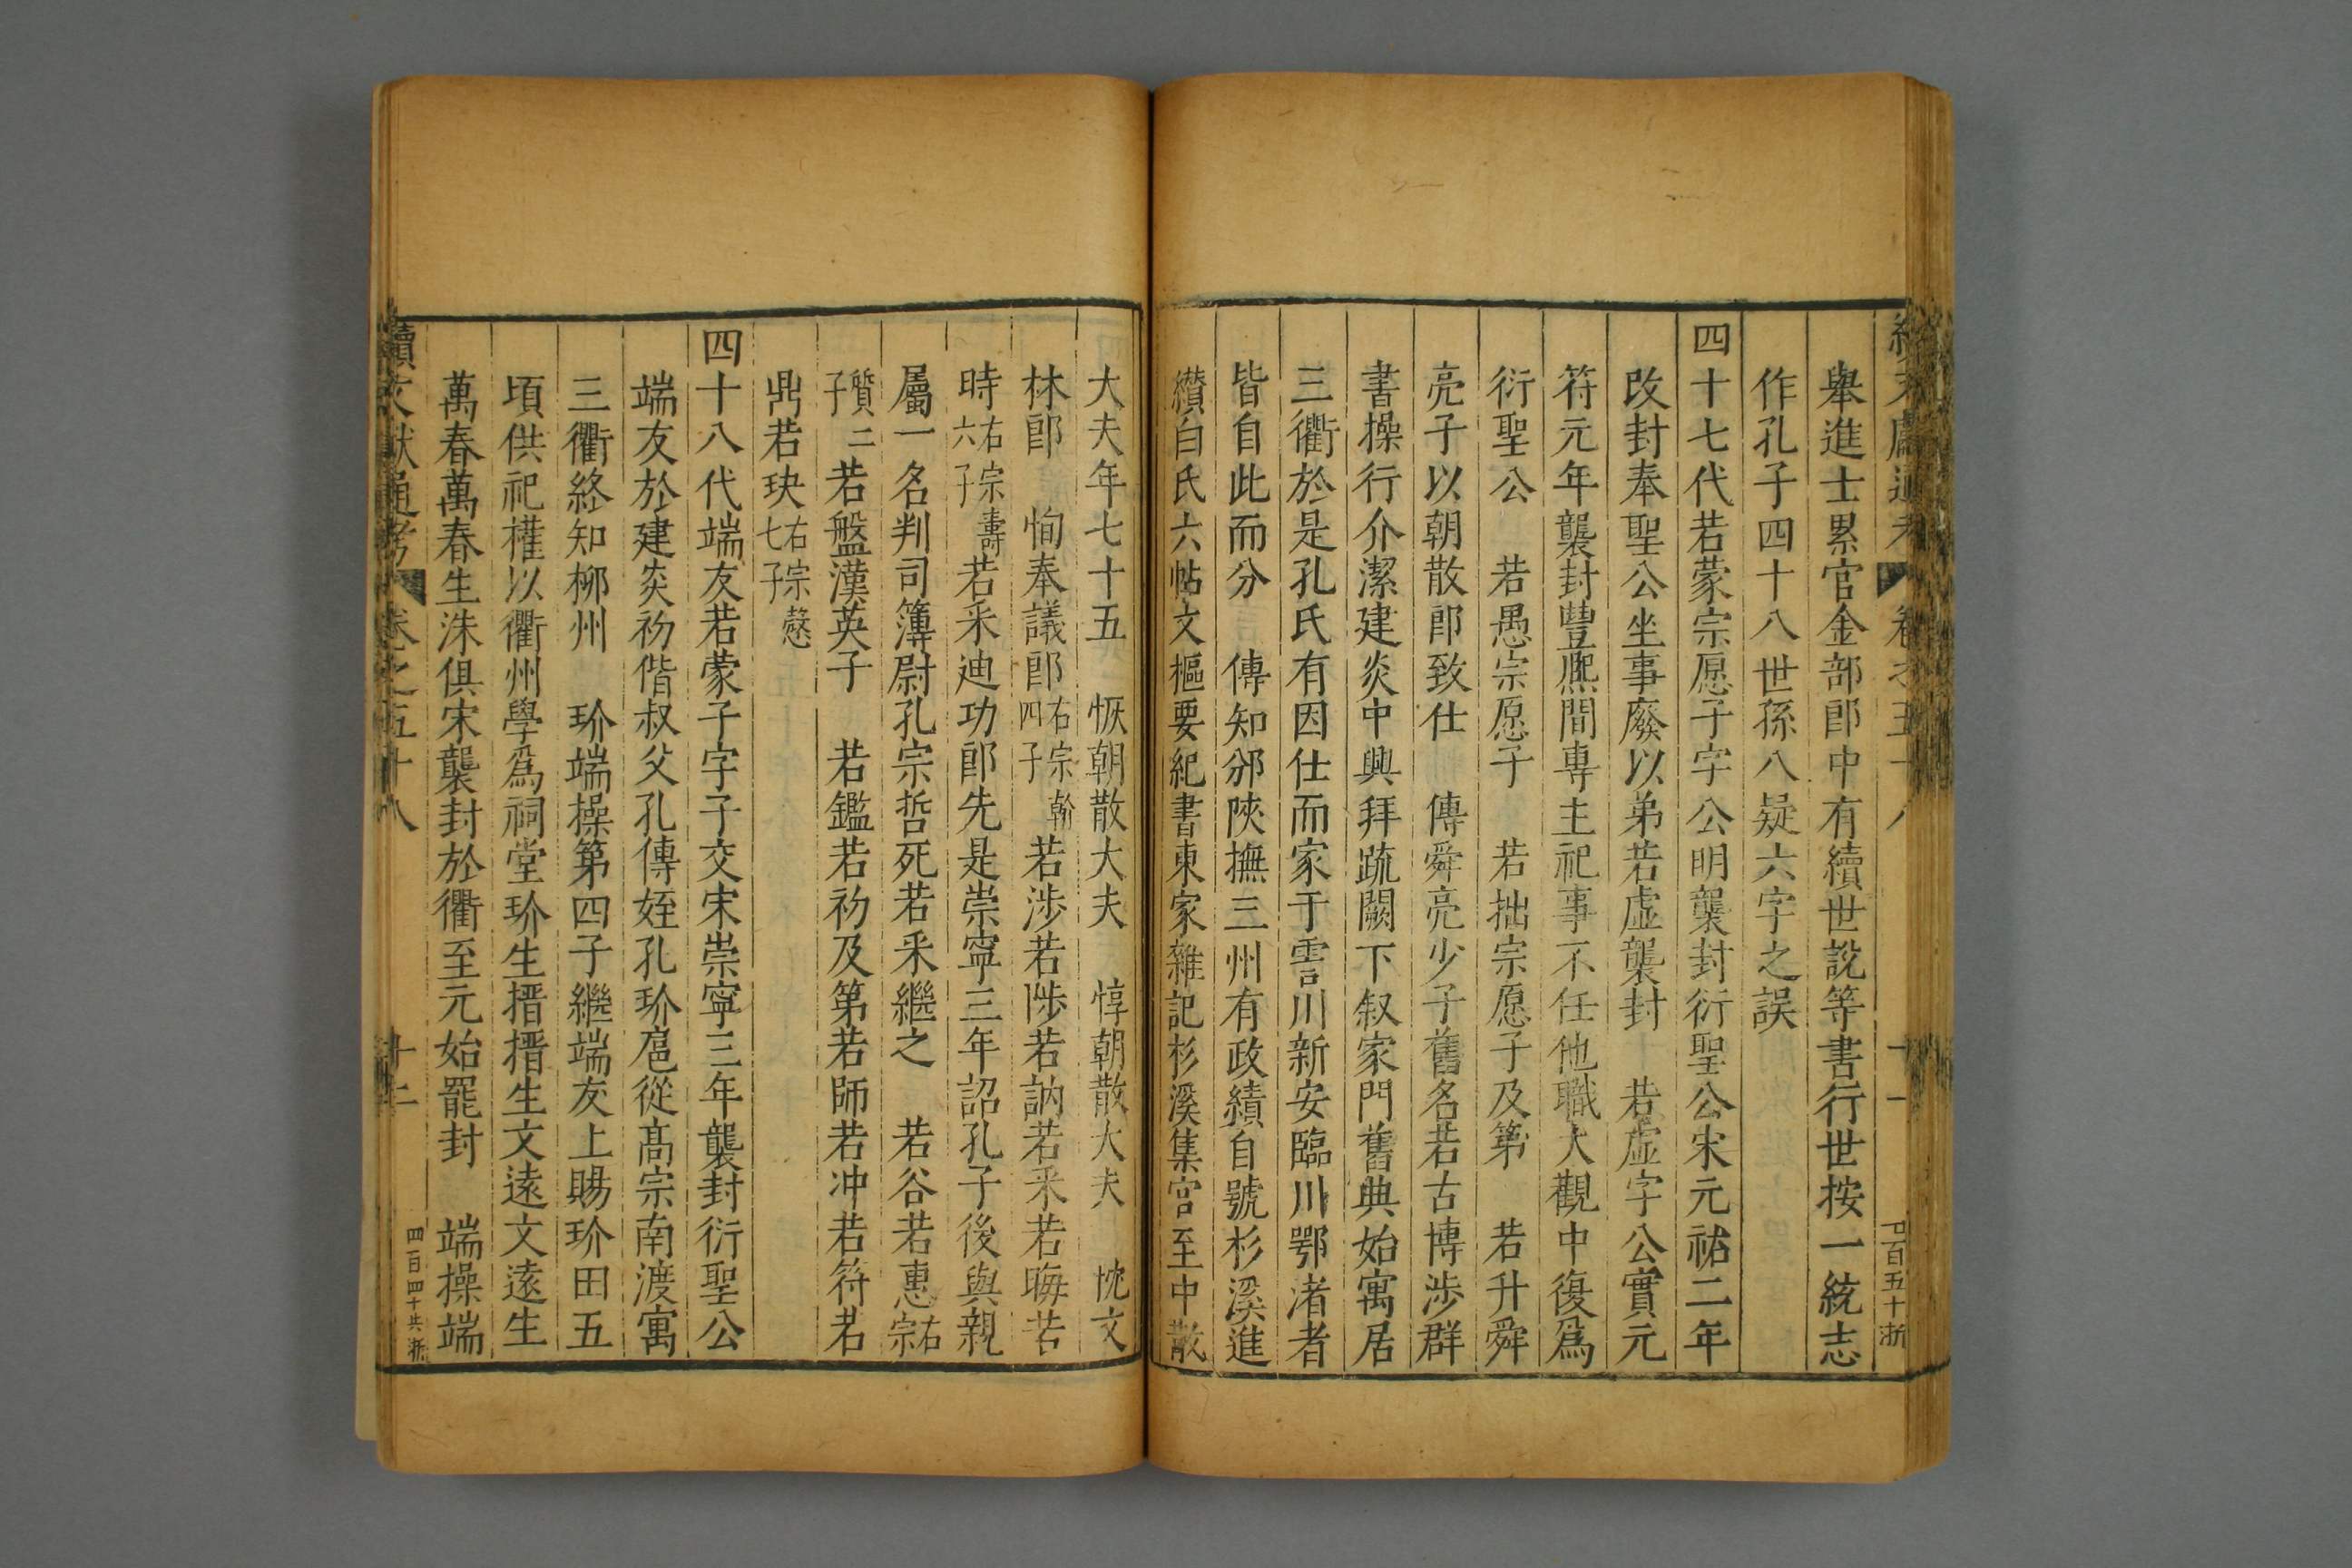 舉進士累官金部郎中有續世說等書行世按一統志
作孔子四十八世孫八疑六字之誤
四十七代若蒙宗愿子字公明襲封衍聖公宋元祐二年
改封奉聖公坐事廢以弟若虛襲封　若虛字公實元
符元年襲封豐熈間專主祀事不任他職大觀中復爲
衍聖公　若愚宗愿子　若拙宗愿子及第　若升舜
亮子以朝散郎致仕　傳舜亮少子舊名若古博涉群
書操行介潔建炎中興拜疏闕下叙家門舊典始寓居
三衢於是孔氏有因仕而家于雲川新安臨川鄂渚者
皆自此而分　傳知邠陝撫三州有政績自號杉溪進
纉白氏六帖文樞要紀書東家雜記杉溪集官至中散
大夫年七十五　恢朝散大夫　惇朝散大夫　忱文
林郎　恂奉議郎右宗翰四子若涉若陟若訥若釆若晦若
時右宗壽六子若釆迪功郎先是崇寧三年詔孔子後與親
屬一名判司簿尉孔宗哲死若釆繼之　若谷若惠右宗
質二子若盤漢英子　若鑑若礽及第若師若冲若符若
鼎若玦右宗愨七子
四十八代端友若蒙子字子交宋崇寧三年襲封衍聖公
端友於建炎初偕叔父孔傳姪孔玠扈從髙宗南渡寓
三衢終知柳州　玠端操第四子繼端友上賜玠田五
頃供祀權以衢州學爲祠堂玠生搢搢生文逺文逺生
萬春萬春生洙俱宋襲封於衢至元始罷封　端操端
續文獻通考　卷之五十八　十二
四百四十共浙